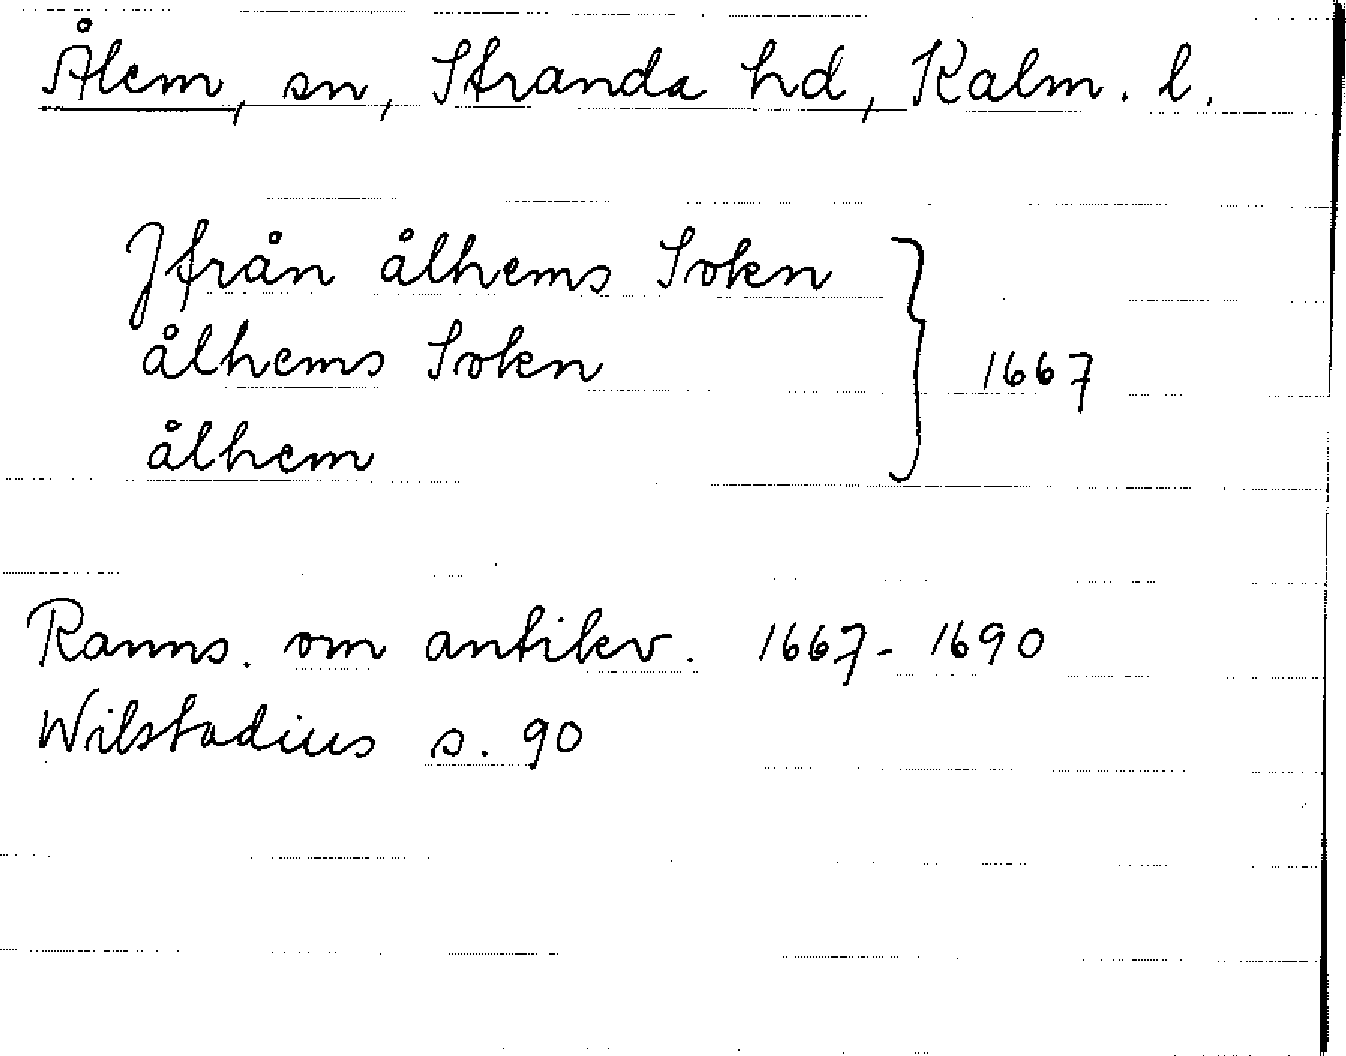 Ålem, sn, Stranda hd, Kalm. l.
Ifrån ålhems Sokn
ålhems Sokn
ålhem
} 1667
Ranns. om antikv. 1667-1690
Wilstadius s. 90